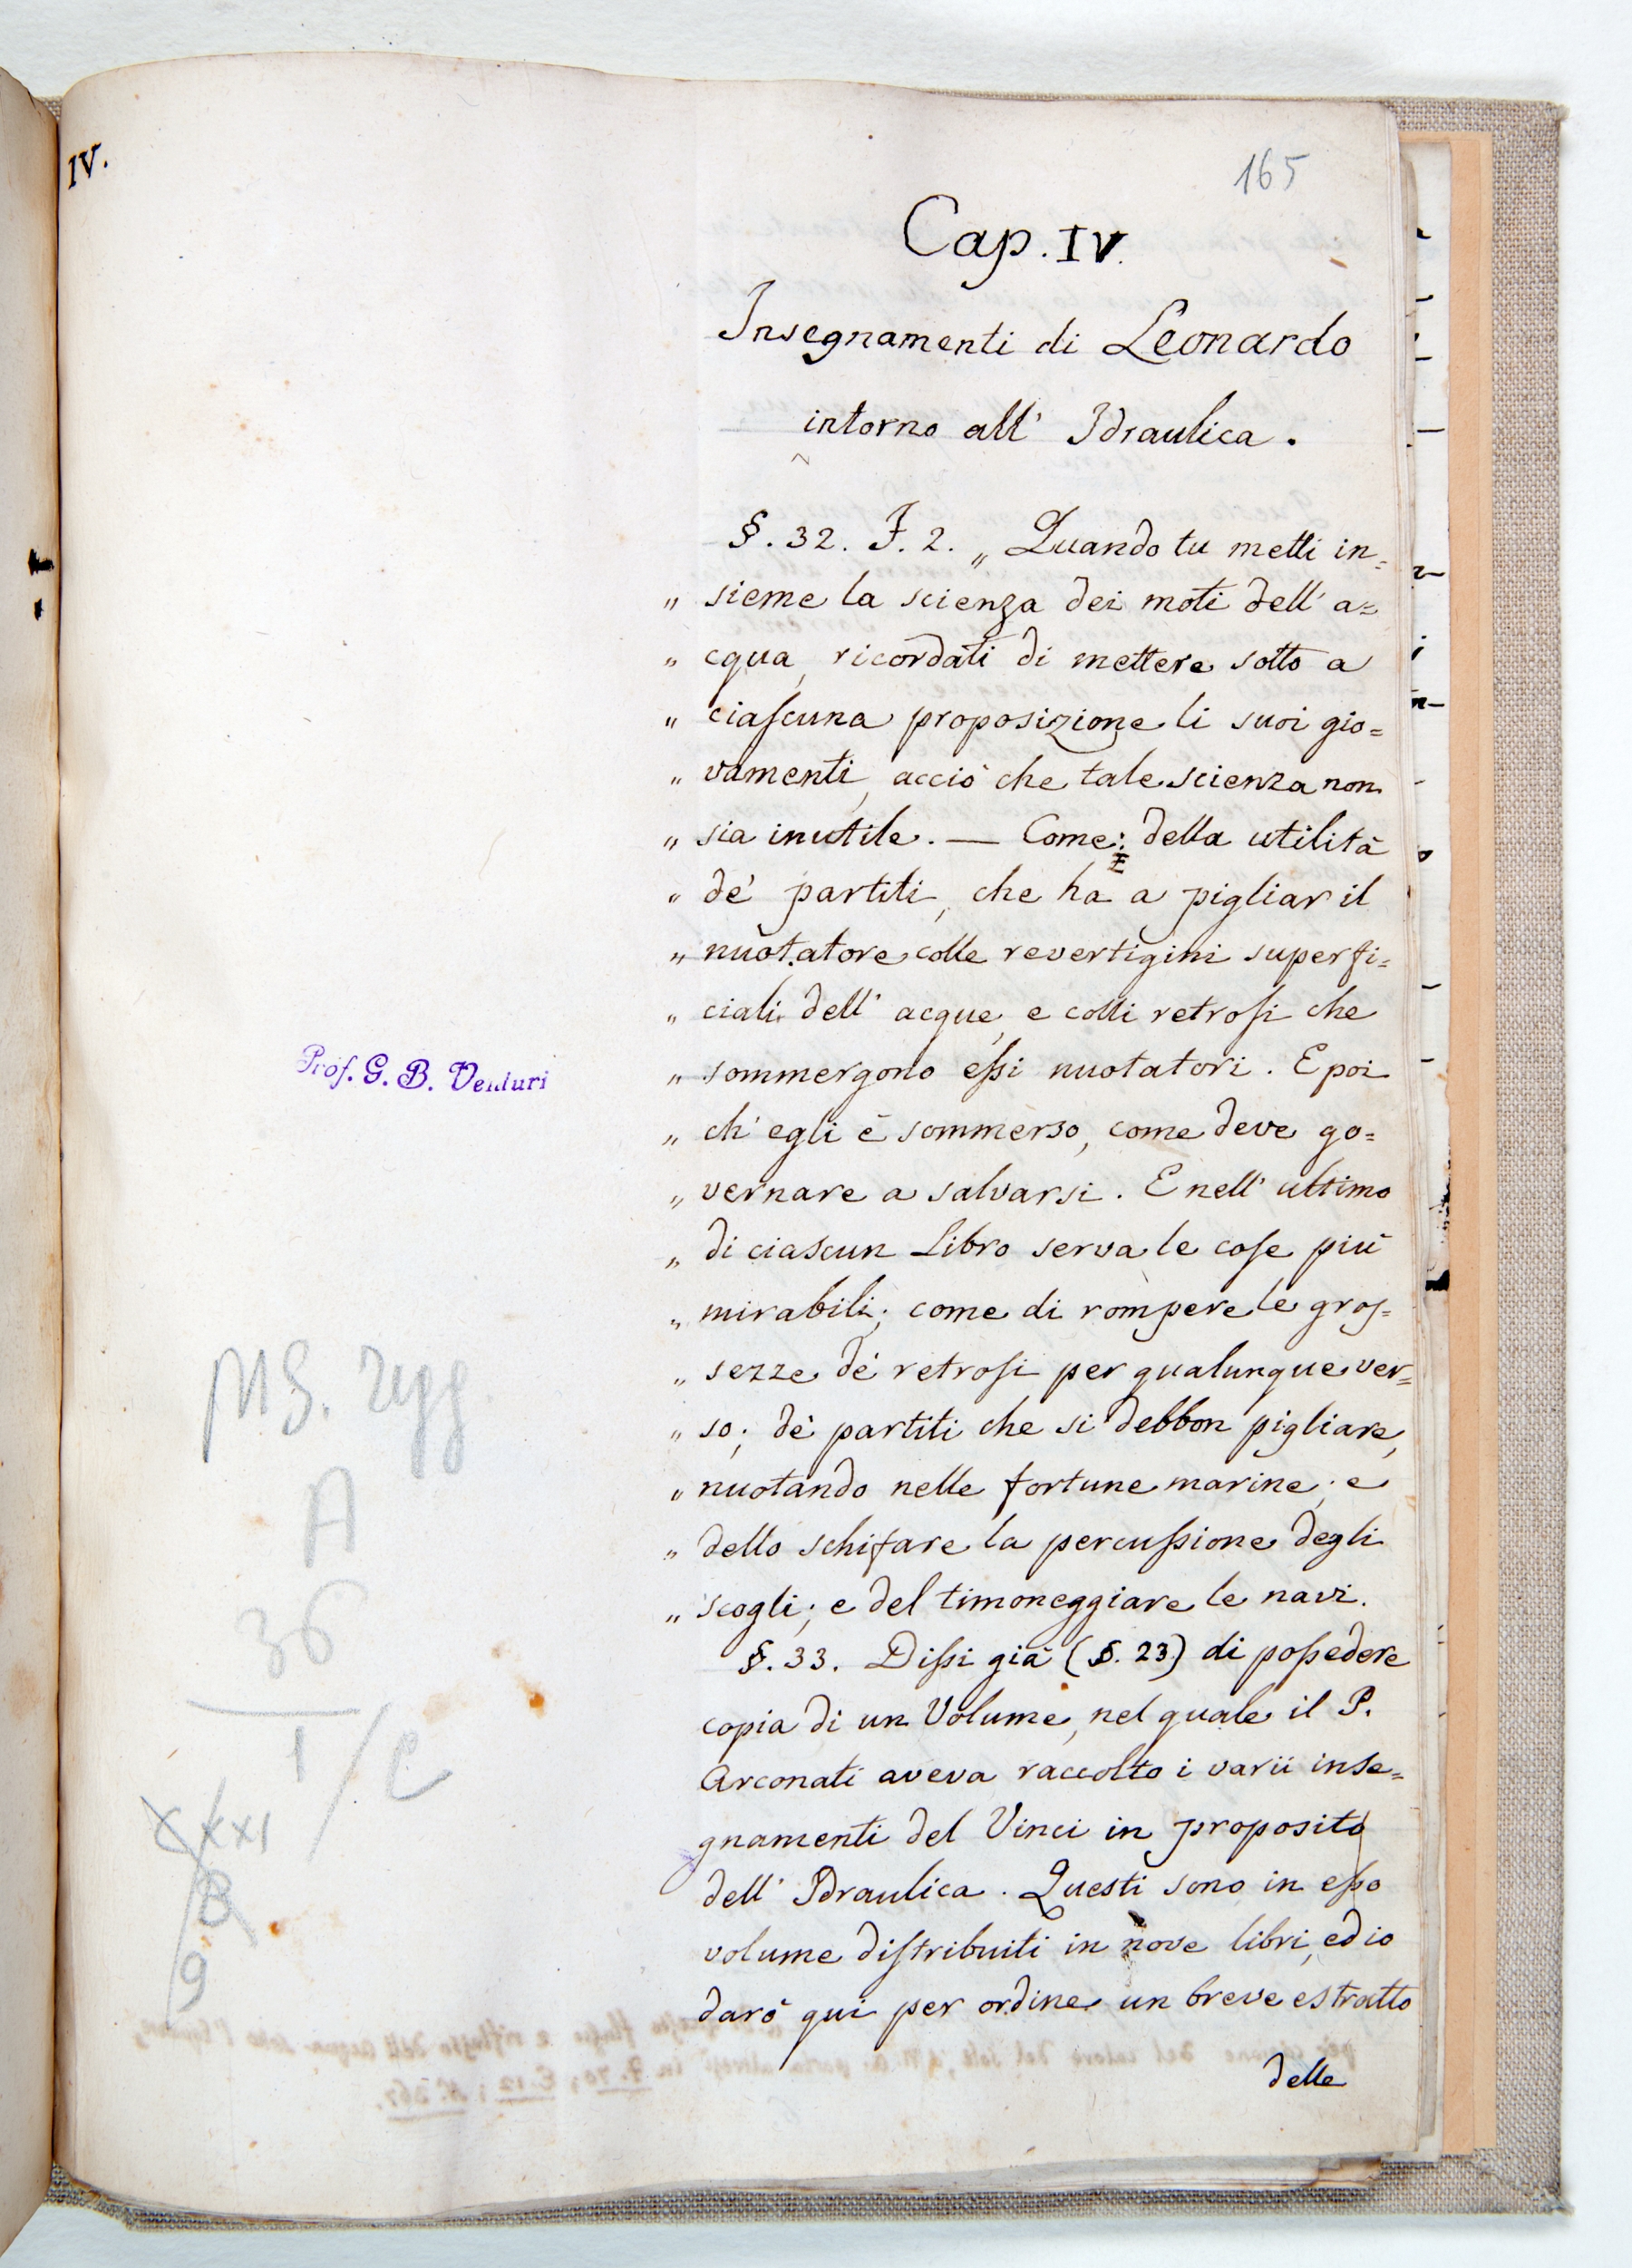 IV.
165
Cap. IV.
Insegnamenti di Leonardo
intorno all' Idraulica.
§. 32. F. 2. „ Quando tu metti in=
„ sieme la scienza dei moti dell' a=
„ cqua, ricordati di mettere sotto a
„ ciaſcuna proposizione li suoi gio=
„ vamenti, acciò che tale scienza non
„ sia inutile. — Come: della utilità
„ de' partiti, che ha a pigliar il
„ nuotatore colle revertigini superfi=
„ ciali dell' acque, e colli retroſi che
„ sommergono eſsi nuotatori. E poi
„ ch' egli è sommerso, come deve go=
„ vernare a salvarsi. E nell' ultimo
„ di ciascun Libro serva le coſe più
„ mirabili; come di rompere le groſ=
„ sezze de' retroſi per qualunque ver=
„ so; de' partiti che si debbon pigliare,
„ nuotando nelle fortune marine; e
„ dello schifare la percuſsione degli
„ scogli; e del timoneggiare le navi.
§. 33. Diſsi già (§. 23) di poſsedere
copia di un Volume, nel quale il P.
Arconati aveva raccolto i varii inse=
gnamenti del Vinci in proposito
dell' Idraulica. Questi sono in eſso
volume diſtribuiti in nove libri, ed io
darò qui per ordine un breve estratto
delle
Prof. G. B. Venturi
MS.
A
36
1/C
XXXI
B
9